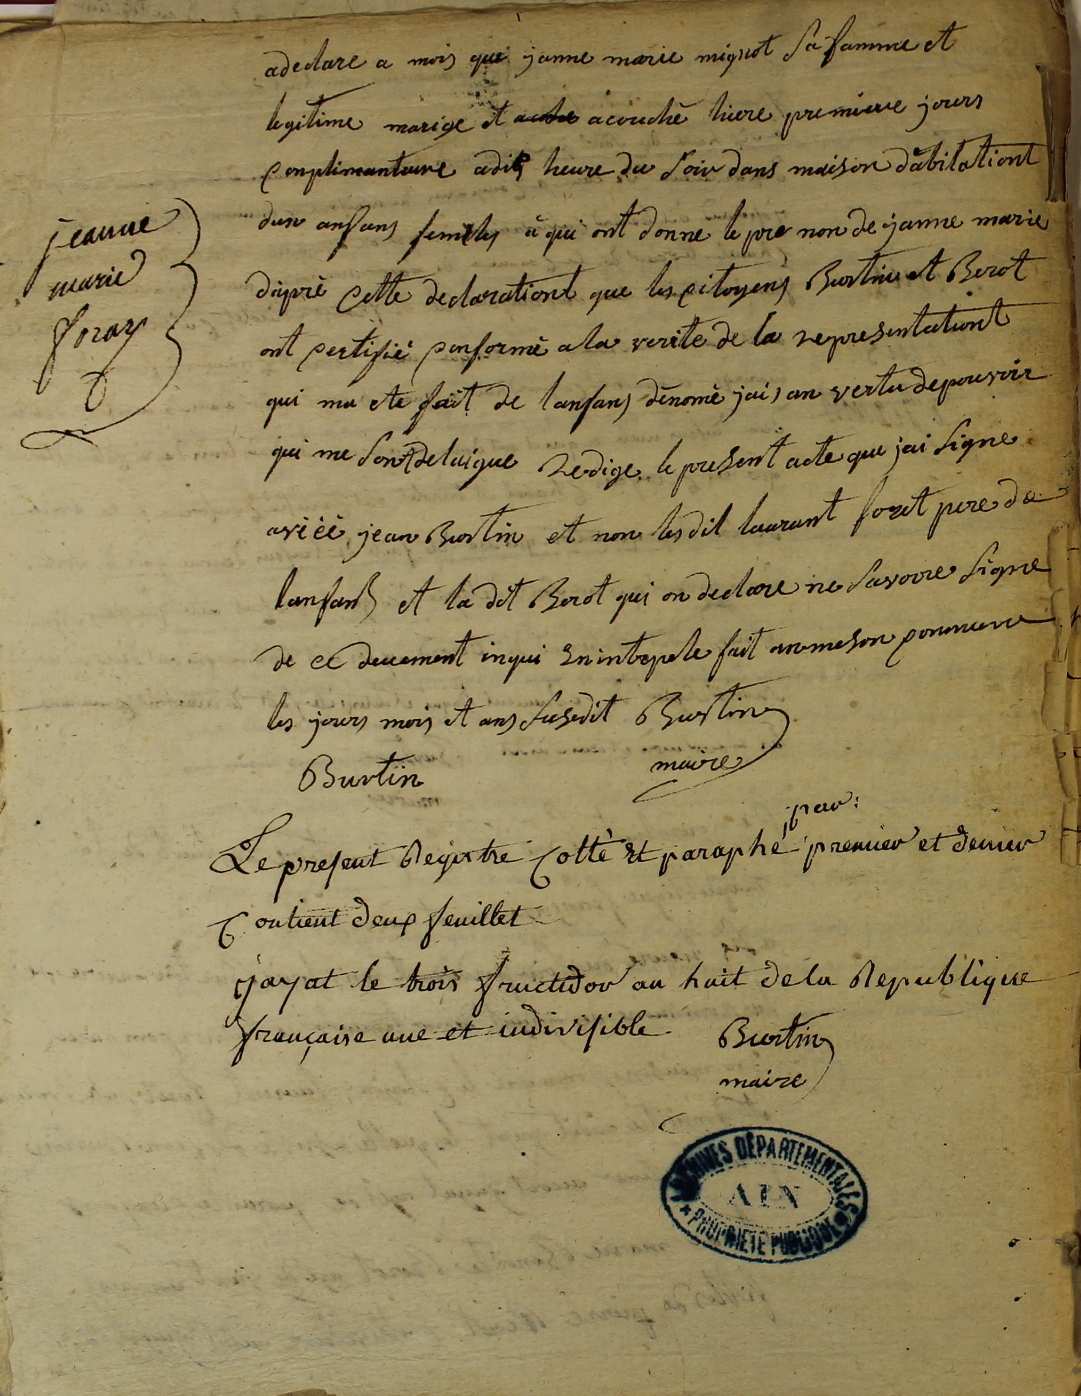 adeclare a mois que janne marie mignot sa famme et
legitime marige et acouchè hiere premiere jours
complimantaire adix heure du soir dans maison dàbilationt
dun anfans femeles à qui ont donne le pre non de janne marie
jeanne
marie
foray
dàprè cette declarationt que les citoyens Burtin et Berot
ont certifiè conformè a la verite de la representationt
qui ma ete fait de lanfans dènomè jais an vertu de pouvoir
qui me sont delaigue redige le present acte que jai signe
avèè jean Burtin et non lesdit laurant foret pere de
lanfans et la dit Berot qui on declare ne savoire signe
de ce ducement inqui fait anmeson commune
les jours mois et ans susedit Burtin
Burtin maire
Le present Registre Cotté et paraphé par premier et dernier
Contient deux feuillet
jayat le trois fructidor an huit de la Republique
française une et indivisible Burtin
maire
ARCHIVES DÉPARTEMENTALES
AIN
PROPRIÉTÉ PUBLIQUE